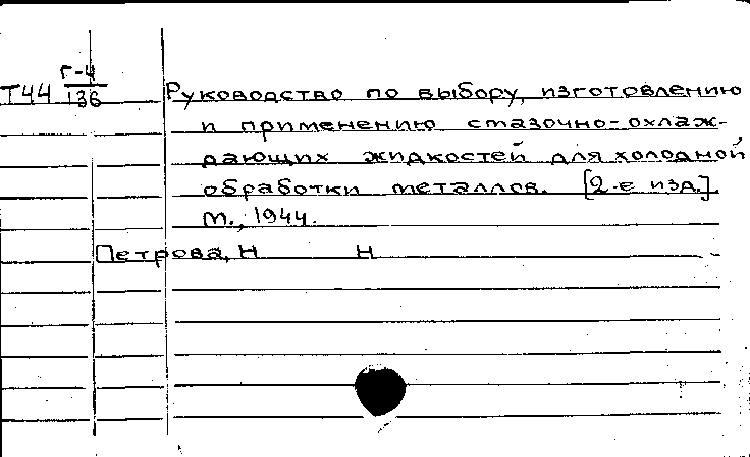 Т44 Г-4
136
Руководство по выбору, изготовлению
и применению смазочно-охлаж-
дающих жидкостей для холодной
обработки металлов. [2-е изд.].
М., 1944.
Петрова, Н Н